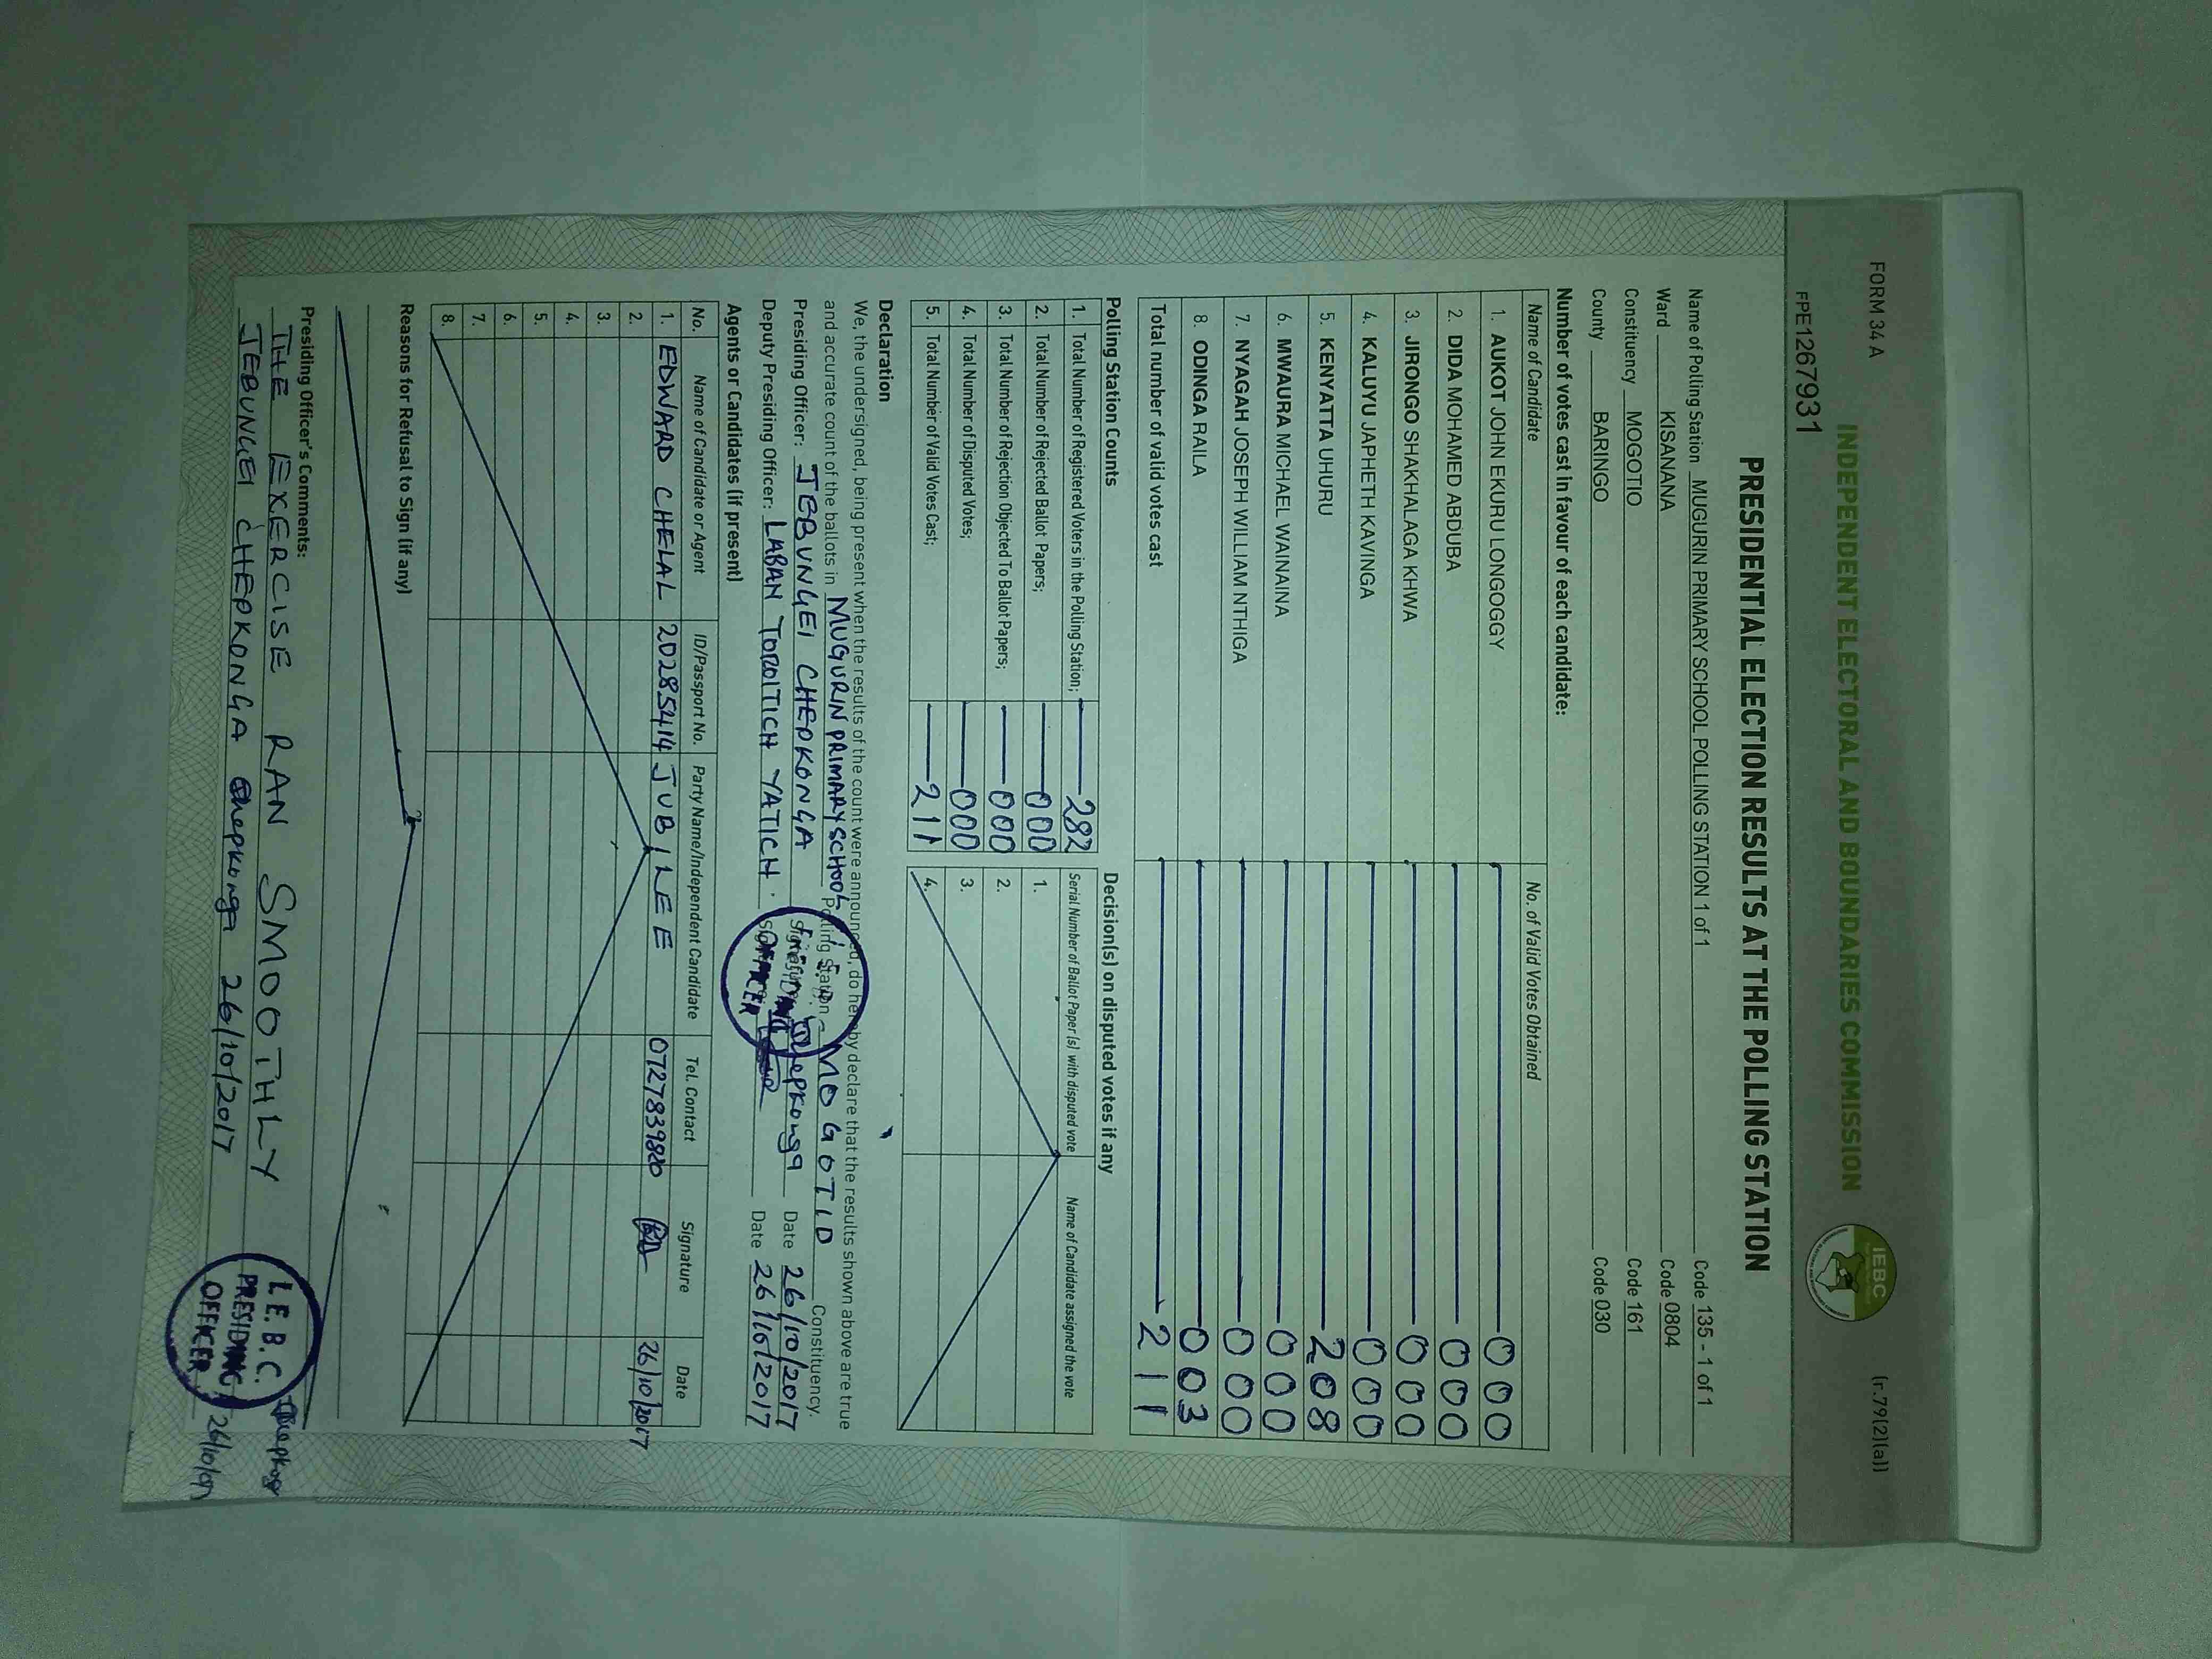 FORM 34 A
(r.79(2)(a))
INDEPENDENT ELECTORAL AND BOUNDARIES COMMISSION
IEBC
FPE1267931
PRESIDENTIAL ELECTION RESULTS AT THE POLLING STATION
Name of Polling Station MUGURIN PRIMARY SCHOOL POLLING STATION 1 of 1 Code 135 - 1 of 1
Ward KISANANA Code 0804
Constituency MOGOTIO Code 161
County BARINGO Code 030
Number of votes cast in favour of each candidate:
Name of Candidate No. of Valid Votes Obtained
1. AUKOT JOHN EKURU LONGOGGY 000
2. DIDA MOHAMED ABDUBA 000
3. JIRONGO SHAKHALAGA KHWA 000
4. KALUYU JAPHETH KAVINGA 000
5. KENYATTA UHURU 208
6. MWAURA MICHAEL WAINAINA 000
7. NYAGAH JOSEPH WILLIAM NTHIGA 000
8. ODINGA RAILA 003
Total number of valid votes cast 211
Polling Station Counts
1. Total Number of Registered Voters in the Polling Station; 282
2. Total Number of Rejected Ballot Papers; 000
3. Total Number of Rejection Objected To Ballot Papers; 000
4. Total Number of Disputed Votes; 000
5. Total Number of Valid Votes Cast; 211
Decision(s) on disputed votes if any
Serial Number of Ballot Paper (s) with disputed vote Name of Candidate assigned the vote
1.
2.
3.
4.
Declaration
We, the undersigned, being present when the results of the count were announced, do hereby declare that the results shown above are true
and accurate count of the ballots in MUGURIN PRIMARY SCHOOL Polling Station MOGOTIO Constituency.
Presiding Officer: JEBUNGEI CHEPKONGA Signature Chepkonga Date 26/10/2017
Deputy Presiding Officer: LABAN TOROITICH YATICH. Date 26/10/2017
OFFICER
Agents or Candidates (if present)
No. Name of Candidate or Agent ID/Passport No. Party Name/Independent Candidate Tel. Contact Signature Date
1. EDWARD CHELAL 20285414 JUBILEE 0727839820 26/10/2017
2.
3.
4.
5.
6.
7.
8.
Reasons for Refusal to Sign (if any)
Presiding Officer's Comments:
THE EXERCISE RAN SMOOTHLY
JEBUNGEI CHEPKONGA Chepkonga 26/10/2017
I.E.B.C.
PRESIDING
OFFICER